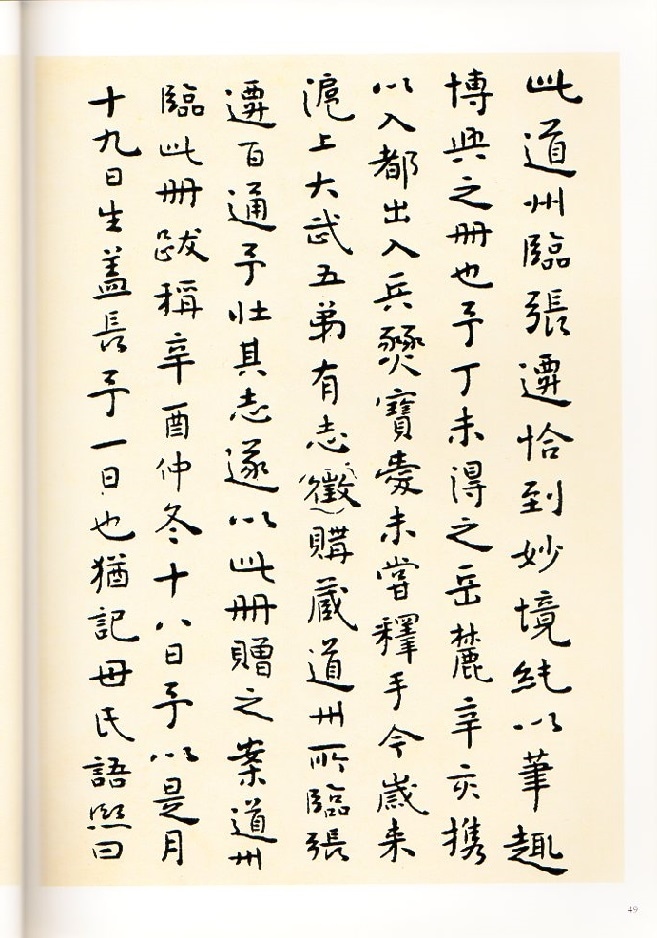 此道州臨張遷恰到妙境純以筆趣
博興之冊也予丁未得之岳麓辛亥携
以入都出入兵燹寶愛未嘗釋手今歲来
滬上大武五弟有志徵購藏道州所臨張
遷百通予壮其志遂以此冊贈之案道州
臨此冊跋稱辛酉仲冬十八日予以是月
十九日生蓋長予一日也猶記母氏語熙曰
49